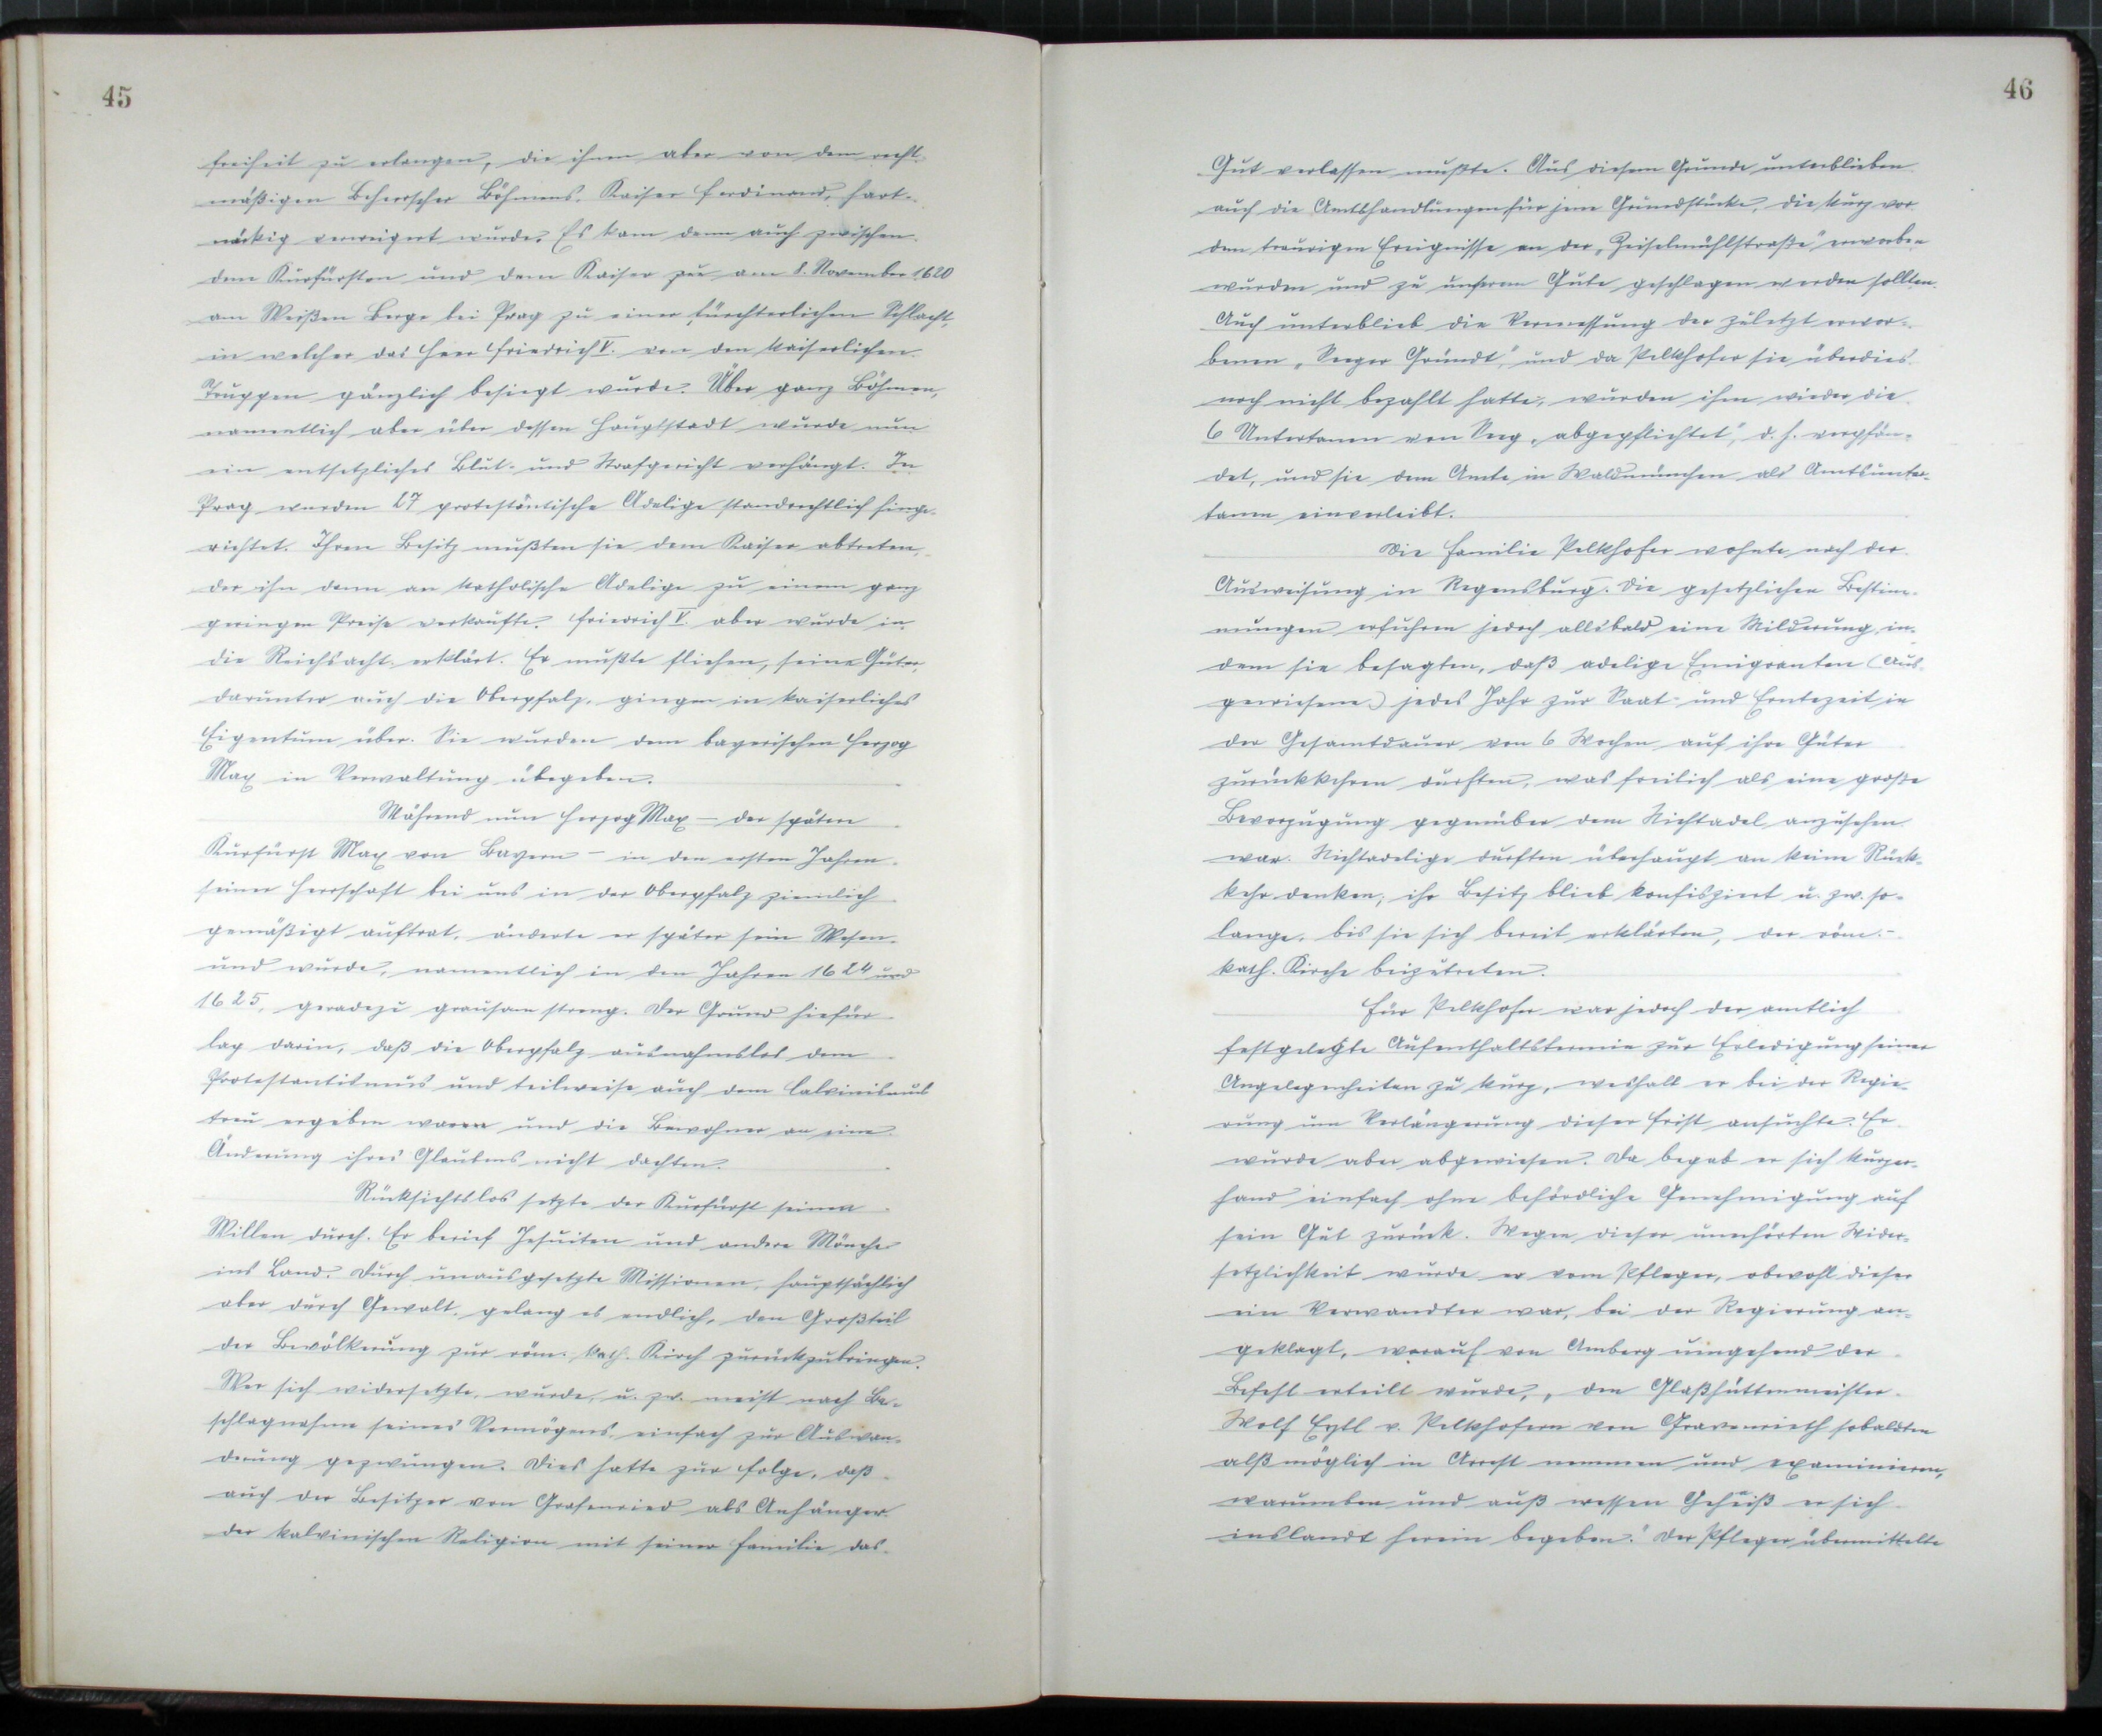 45
freiheit zu erlangen, die ihnen aber von dem recht-
mäßigen Beherrscher Böhmens, Kaiser Ferdinand, hart-
näckig verweigert wurde. Es kam denn auch zwischen
dem Kurfürsten und dem Kaiser zu am 8. November 1620
am Weißen Berge bei Prag zu einer fürchterlichen Schlacht,
in welcher das Heer Friedrich V. von den kaiserlichen
Truppen gänzlich besiegt wurde. Über ganz Böhmen,
namentlich aber über dessen Hauptstadt wurde nun
ein entsetzliches Blut- und Strafgericht verhängt. In
Prag wurden 27 protestantische Adelige standrechtlich hinge-
richtet. Ihren Besitz mußten sie dem Kaiser abtreten,
der ihn dann an katholische Adelige zu einem ganz
geringen Preise verkaufte. Friedrich V. aber wurde in
die Reichsacht erklärt. Er mußte fliehen, seine Güter,
darunter auch die Oberpfalz, gingen in kaiserliches
Eigentum über. Sie wurden dem bayerischen Herzog
Max in Verwaltung übegeben.
Während nun Herzog Max – der spätere
Kurfürst Max von Bayern – in den ersten Jahren
seiner Herrschaft bei uns in der Oberpfalz ziemlich
gemäßigt auftrat, änderte er später sein Wesen
und wurde, namentlich in den Jahren 1624 und
1625, geradezu grausam streng. Der Grund hiefür
lag darin, daß die Oberpfalz ausnahmslos dem
Protestantismus und teilweise auch dem Calvinismus
treu ergeben waren und die Bewohner an eine
Änderung ihres Glaubens nicht dachten.
Rücksichtslos setzte der Kurfürst seinen
Willen durch. Er berief Jesuiten und andere Mönche
ins Land. Durch unausgesetzte Missionen, hauptsächlich
aber durch Gewalt, gelang es endlich, den Großteil
der Bevölkerung zur röm. kath. Kirch zurückzubringen.
Wer sich widersetzte, wurde, u. zw. meist nach Be-
schlagnahme seines Vermögens, einfach zur Auswan-
derung gezwungen. Dies hatte zur Folge, daß
auch der Besitzer von Grafenried als Anhänger
der kalvinischen Religion mit seiner Familie das
46
Gut verlassen mußte. Aus diesem Grunde unterblieben
auch die Amtshandlungen für jene Grundstücke, die kurz vor
dem traurigen Ereignisse an der „Zeiselmühlstraße" erworben
wurden und zu unserem Gute geschlagen werden sollten.
Auch unterblieb die Vermessung der zuletzt erwor-
benen „Seeger Gründt", und da Pelkhofer sie überdies
noch nicht bezahlt hatte, wurden ihm wieder die
6 Untertanen von Seeg „abgepflichtet", d. h. verpfän-
det, und sie dem Amte in Waldmünchen als Amtsunter-
tanen einverleibt.
Die Familie Pelkhofer wohnte nach der
Ausweisung in Regensburg. Die gesetzlichen Bestim-
mungen erfuhren jedoch allsbald eine Milderung, in-
dem sie besagten, daß adelige Emigranten (Aus-
gewiesene) jedes Jahr zur Saat- und Erntezeit in
der Gesamtdauer von 6 Wochen auf ihre Güter
zurückkehren durften, was freilich als eine große
Bevorzugung gegenüber dem Nichtadel anzusehen
war. Nichtadelige durften überhaupt an keine Rück-
kehr denken; ihr Besitz blieb konfisziert u. zw. so-
lange, bis sie sich bereit erklärten, der röm.-
kath. Kirche beizutreten.
Für Pelkhofer war jedoch der amtlich
festgelegte Aufenthaltstermin zur Erledigung seiner
Angelegenheiten zu kurz, weshalb er bei der Regie-
rung um Verlängerung dieser Frist ansuchte. Er
wurde aber abgewiesen. Da begab er sich kurzer-
hand einfach ohne behördliche Genehmigung auf
sein Gut zurück. Wegen dieser unerhörten Wider-
setzlichkeit wurde er vom Pfleger, obwohl dieser
ein Verwandter war, bei der Regierung an-
geklagt, worauf von Amberg umgehend der
Befehl erteilt wurde, „den Glaßhüttenmeister
Wolf Eytl v. Pelkhofern von Gravenrieth sobaldten
alß möglich in Arrest nemmen und examinieren,
warumben und auß wessen Geheiß er sich
inslandt herein begeben." Der Pfleger übermittelte